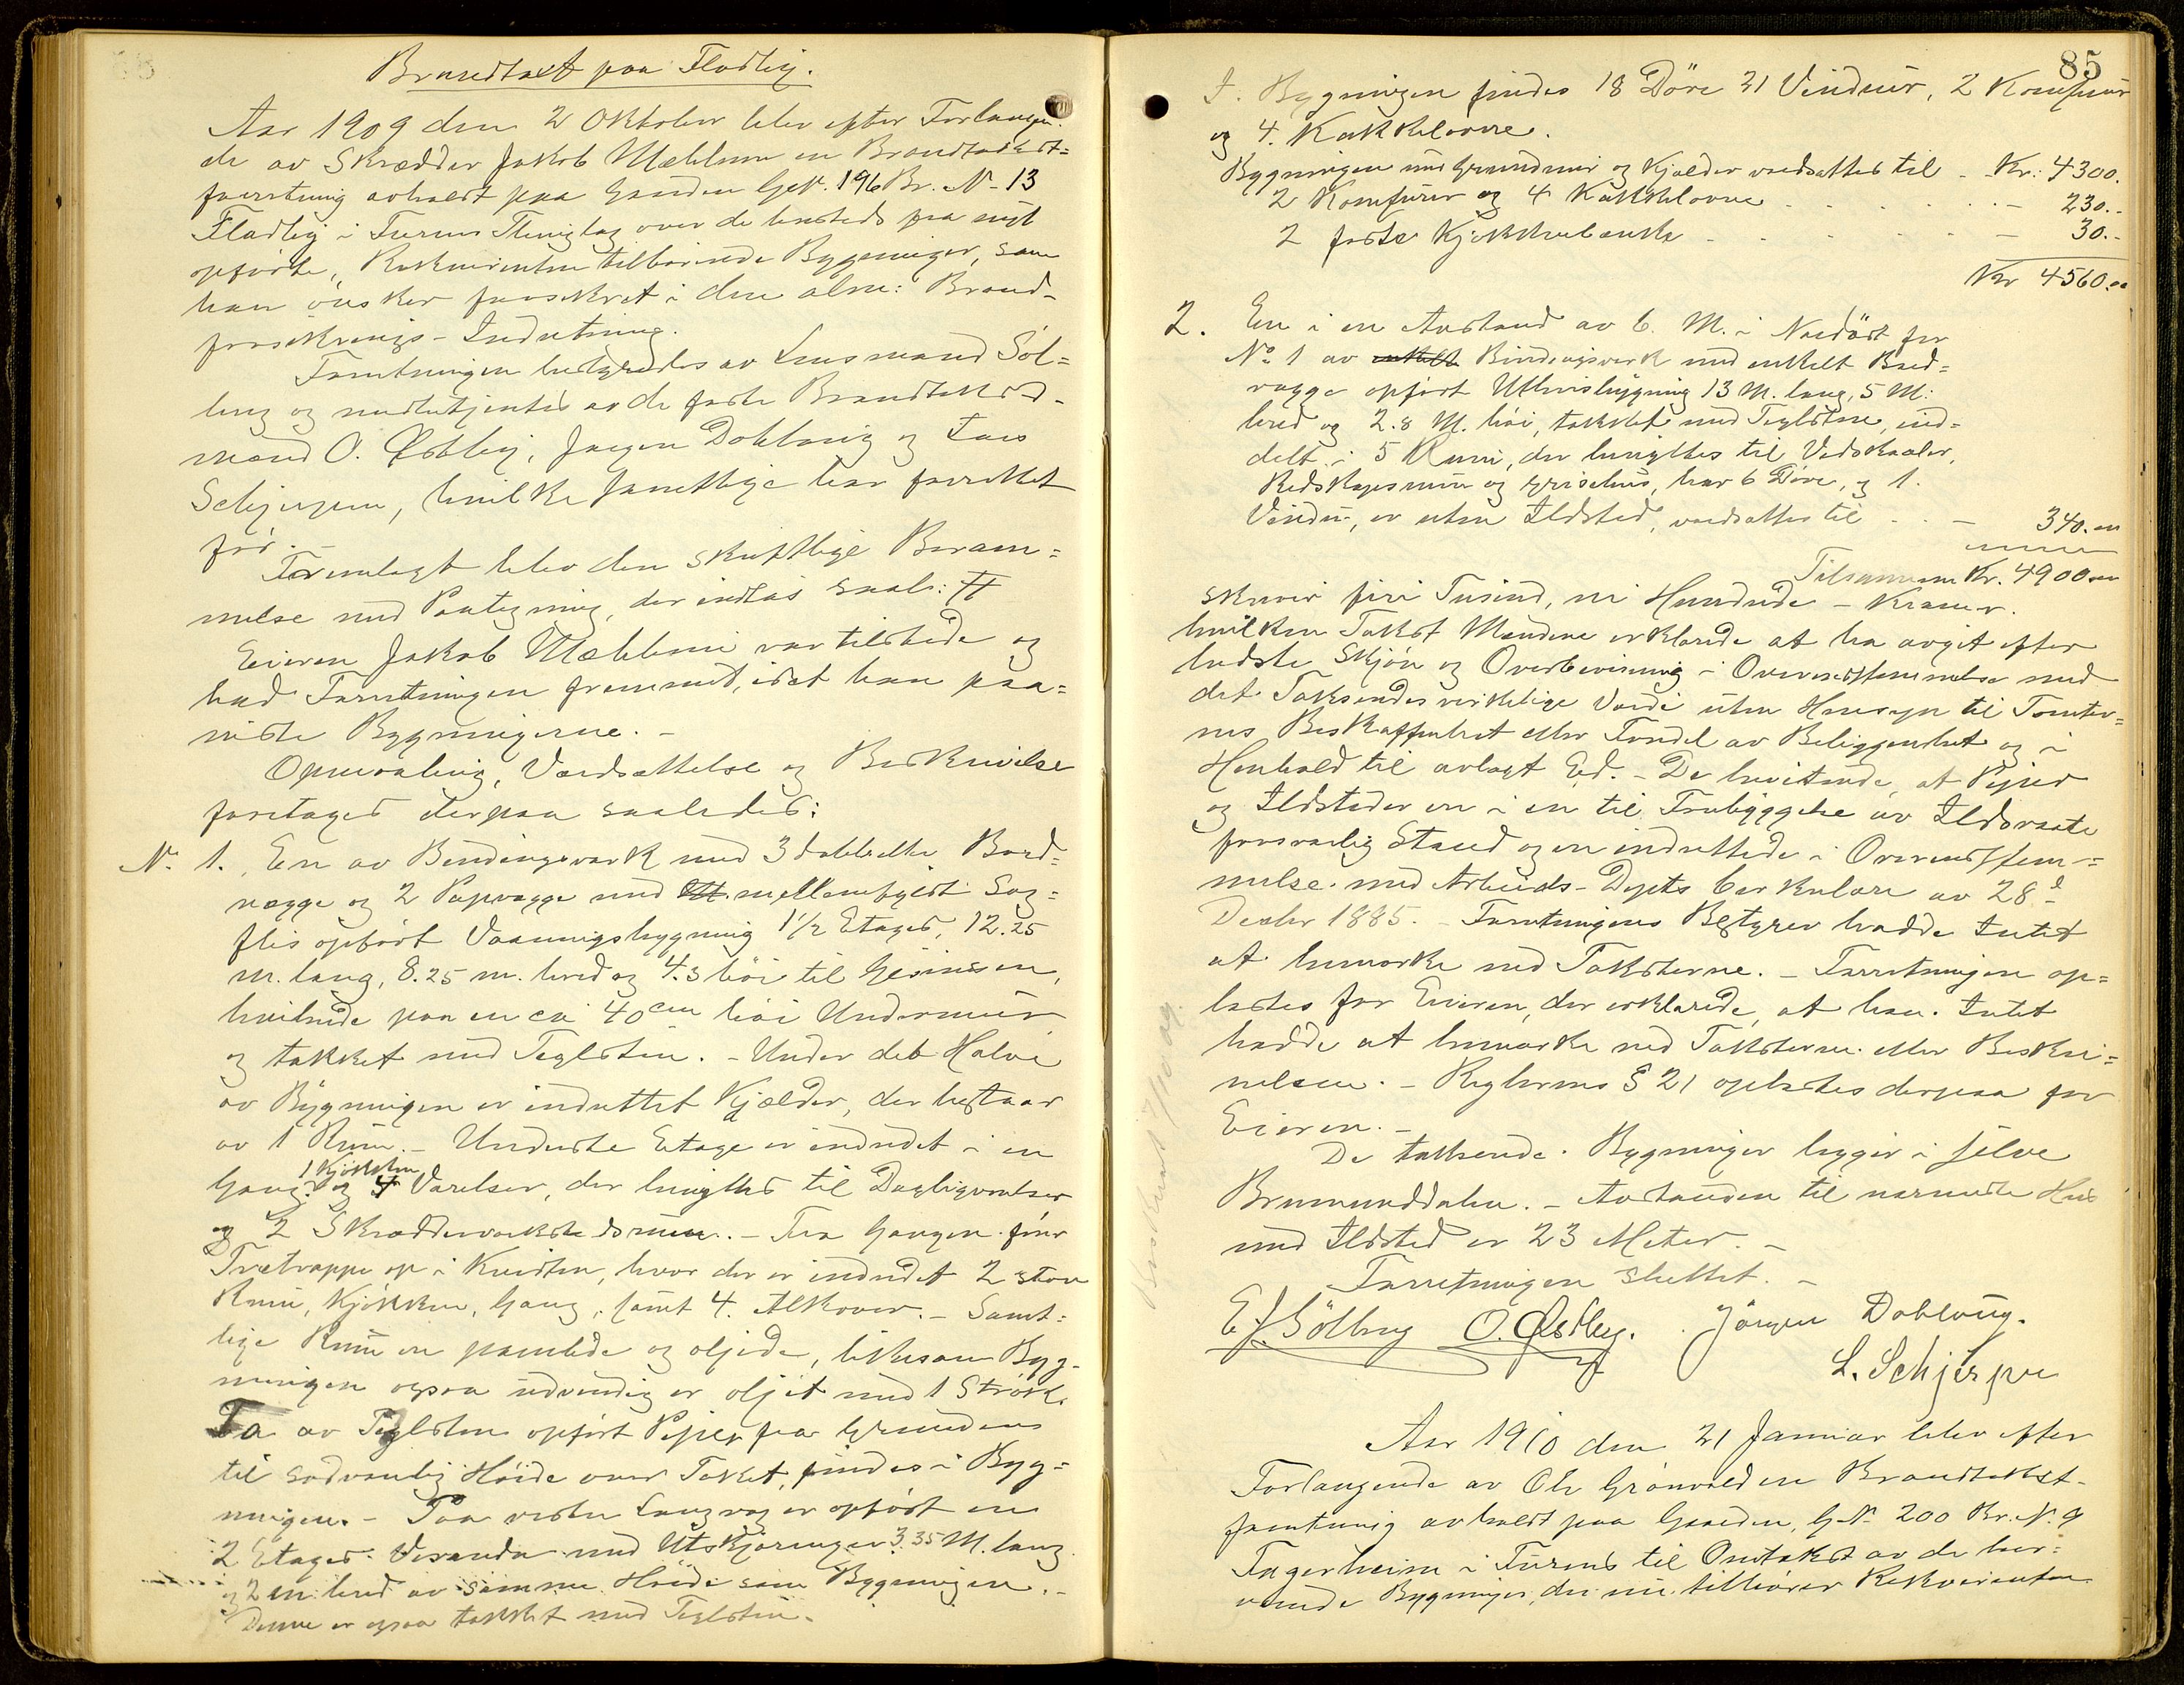 Brandtaxt paa Fladlig.
Aar 1909 den 2 Oktober blev efter Forlangen-
de av Skrædder Jakob Mæhlum en Brandtakst=
forretning avholdt paa Gaarden G.N. 196 Br. N. 13
Fladlig i Furnes Thinglag over de hersteds fra nyt
opførte, Rekvirenten tilhørende Bygninger, som
han ønsker forsikret i den alm: Brand-
forsikrings-Indretning.
Forretningen bestyredes av Lensmand Söl=
berg og medbetjentes av de faste Brandtakst-
mænd O. Østby, Jørgen Dobloug og Lars
Schjerpen, hvilke samtlige har forrettet
før.
Fremlagt blev den skriftlige Beram=
melse med Paategning, der indtas saal: #
Eieren Jakob Mæhlum var tilstede og
bad Forretningen fremmet, idet han paa=
viste Bygningerne. -
Opmaaling, Værdsættelse og Beskrivelse
foretages derpaa saaledes:
N. 1. En av Bindingsverk med 3 dobbelte Bord=
vægge og 2 Papvægge med mellemfyldt Sag=
flis opført Vaaningsbygning 1 1/2 Etages, 12.25
m. lang, 8.25 m. bred og 4.3 höi til Gesimsen,
hvilende paa en ca 40 cm höi Undermur
og tækket med Teglsten. - Under det Halve
av Bygningen er indrettet Kjælder, der bestaar
av 1 Rum. - Underste Etage er indredet i en
Gang, 1 Kjøkken og 4 Værelser, der benyttes til Dagligværelser
og 2 Skrædderverkstedsrum. - Fra Gangen fører
Trætrappe op i Kvisten, hvor der er indredet 2 store
Rum, Kjøkken, Gang, samt 4. Alkover. - Samt=
lige Rum er panelede og oljede, likesom Byg-
ningen ogsaa udvendig er oljet med 1 Strøk.
To av Teglsten opført Piper fra Grunden
til sedvanlig Høide over Taket, findes i Byg=
ningen. - Paa vestre Langvæg er opført en
2 Etages Veranda med Utskjæringer 3.35 M. lang
og 2 m bred av samme Høide som Bygningen. -
Denne er ogsaa tækket med Teglsten.
85
I Bygningen findes 18 Döre 21 Vinduer, 2 Komfurer
og 4. Kakkelovne.
Bygningen med Grundmur og Kjælder værdsættes til - Kr: 4300.
2 Komfurer og 4 Kakkelovne - 230.-
2 faste Kjøkkenbænke - 30.-
Kr 4560.00
2. En i en Avstand av 6. M. i Nordöst for
No 1 av enkelt Bindingsverk med enkelt Bord=
vægge opført Uthusbygning 13 M. lang, 5 M:
bred og 2.8 M. höi, tækket med Teglsten, ind=
delt i 5 Rum, der benyttes til Vedskaaler,
Redskapsrum og Grisehus, har 6 Döre, og 1.
Vindu, er uten Ildsted, værdsættes til - 340.00
Tilsammen Kr. 4900.00
skriver fire Tusind, ni Hundrede - Kroner.
hvilken Takst Mændene erklærede at ha avgit efter
bedste Skjön og Overbevisning i Overensstemmelse med
det Takserdes virkelige Værdi uten Hensyn til Tomter=
nes Beskaffenhet eller Fordel av Beliggenhet og i
Henhold til avlagt Ed. - De bevitnede, at Piper
og Ildsteder er i en til Forebyggelse av Ildsvaade
forsvarlig Stand og er indrettede i Overensstem-=
melse med Arbeids-Depts Cirkulære av 28d
Decbr 1885. - Forretningens Bestyrer hadde Intet
at bemærke ved Taksterne. - Forretningen op=
læstes for Eieren, der erklærede, at han Intet
hadde at bemærke ved Taksterne eller Beskri=
velsen. - Reglernes § 21 oplæstes derpaa for
Eieren. -
De takserede Bygninger ligger i selve
Brumunddalen. - Avstanden til nærmeste Hus
med Ildsted er 23 Meter. -
Forretningen sluttet. -
E. J. Sölberg O. Østby. Jörgen Dobloug.
L. Schjerpen
Aar 1910 den 21 Januar blev efter
Forlangende av Ole Grönvold en Brandtakst-
forretning avholdt paa Gaarden, G.N. 200 Br. N. 9
Fagerheim i Furnes til Omtakst av de her=
værende Bygninger, der nu tilhører Rekvirenten